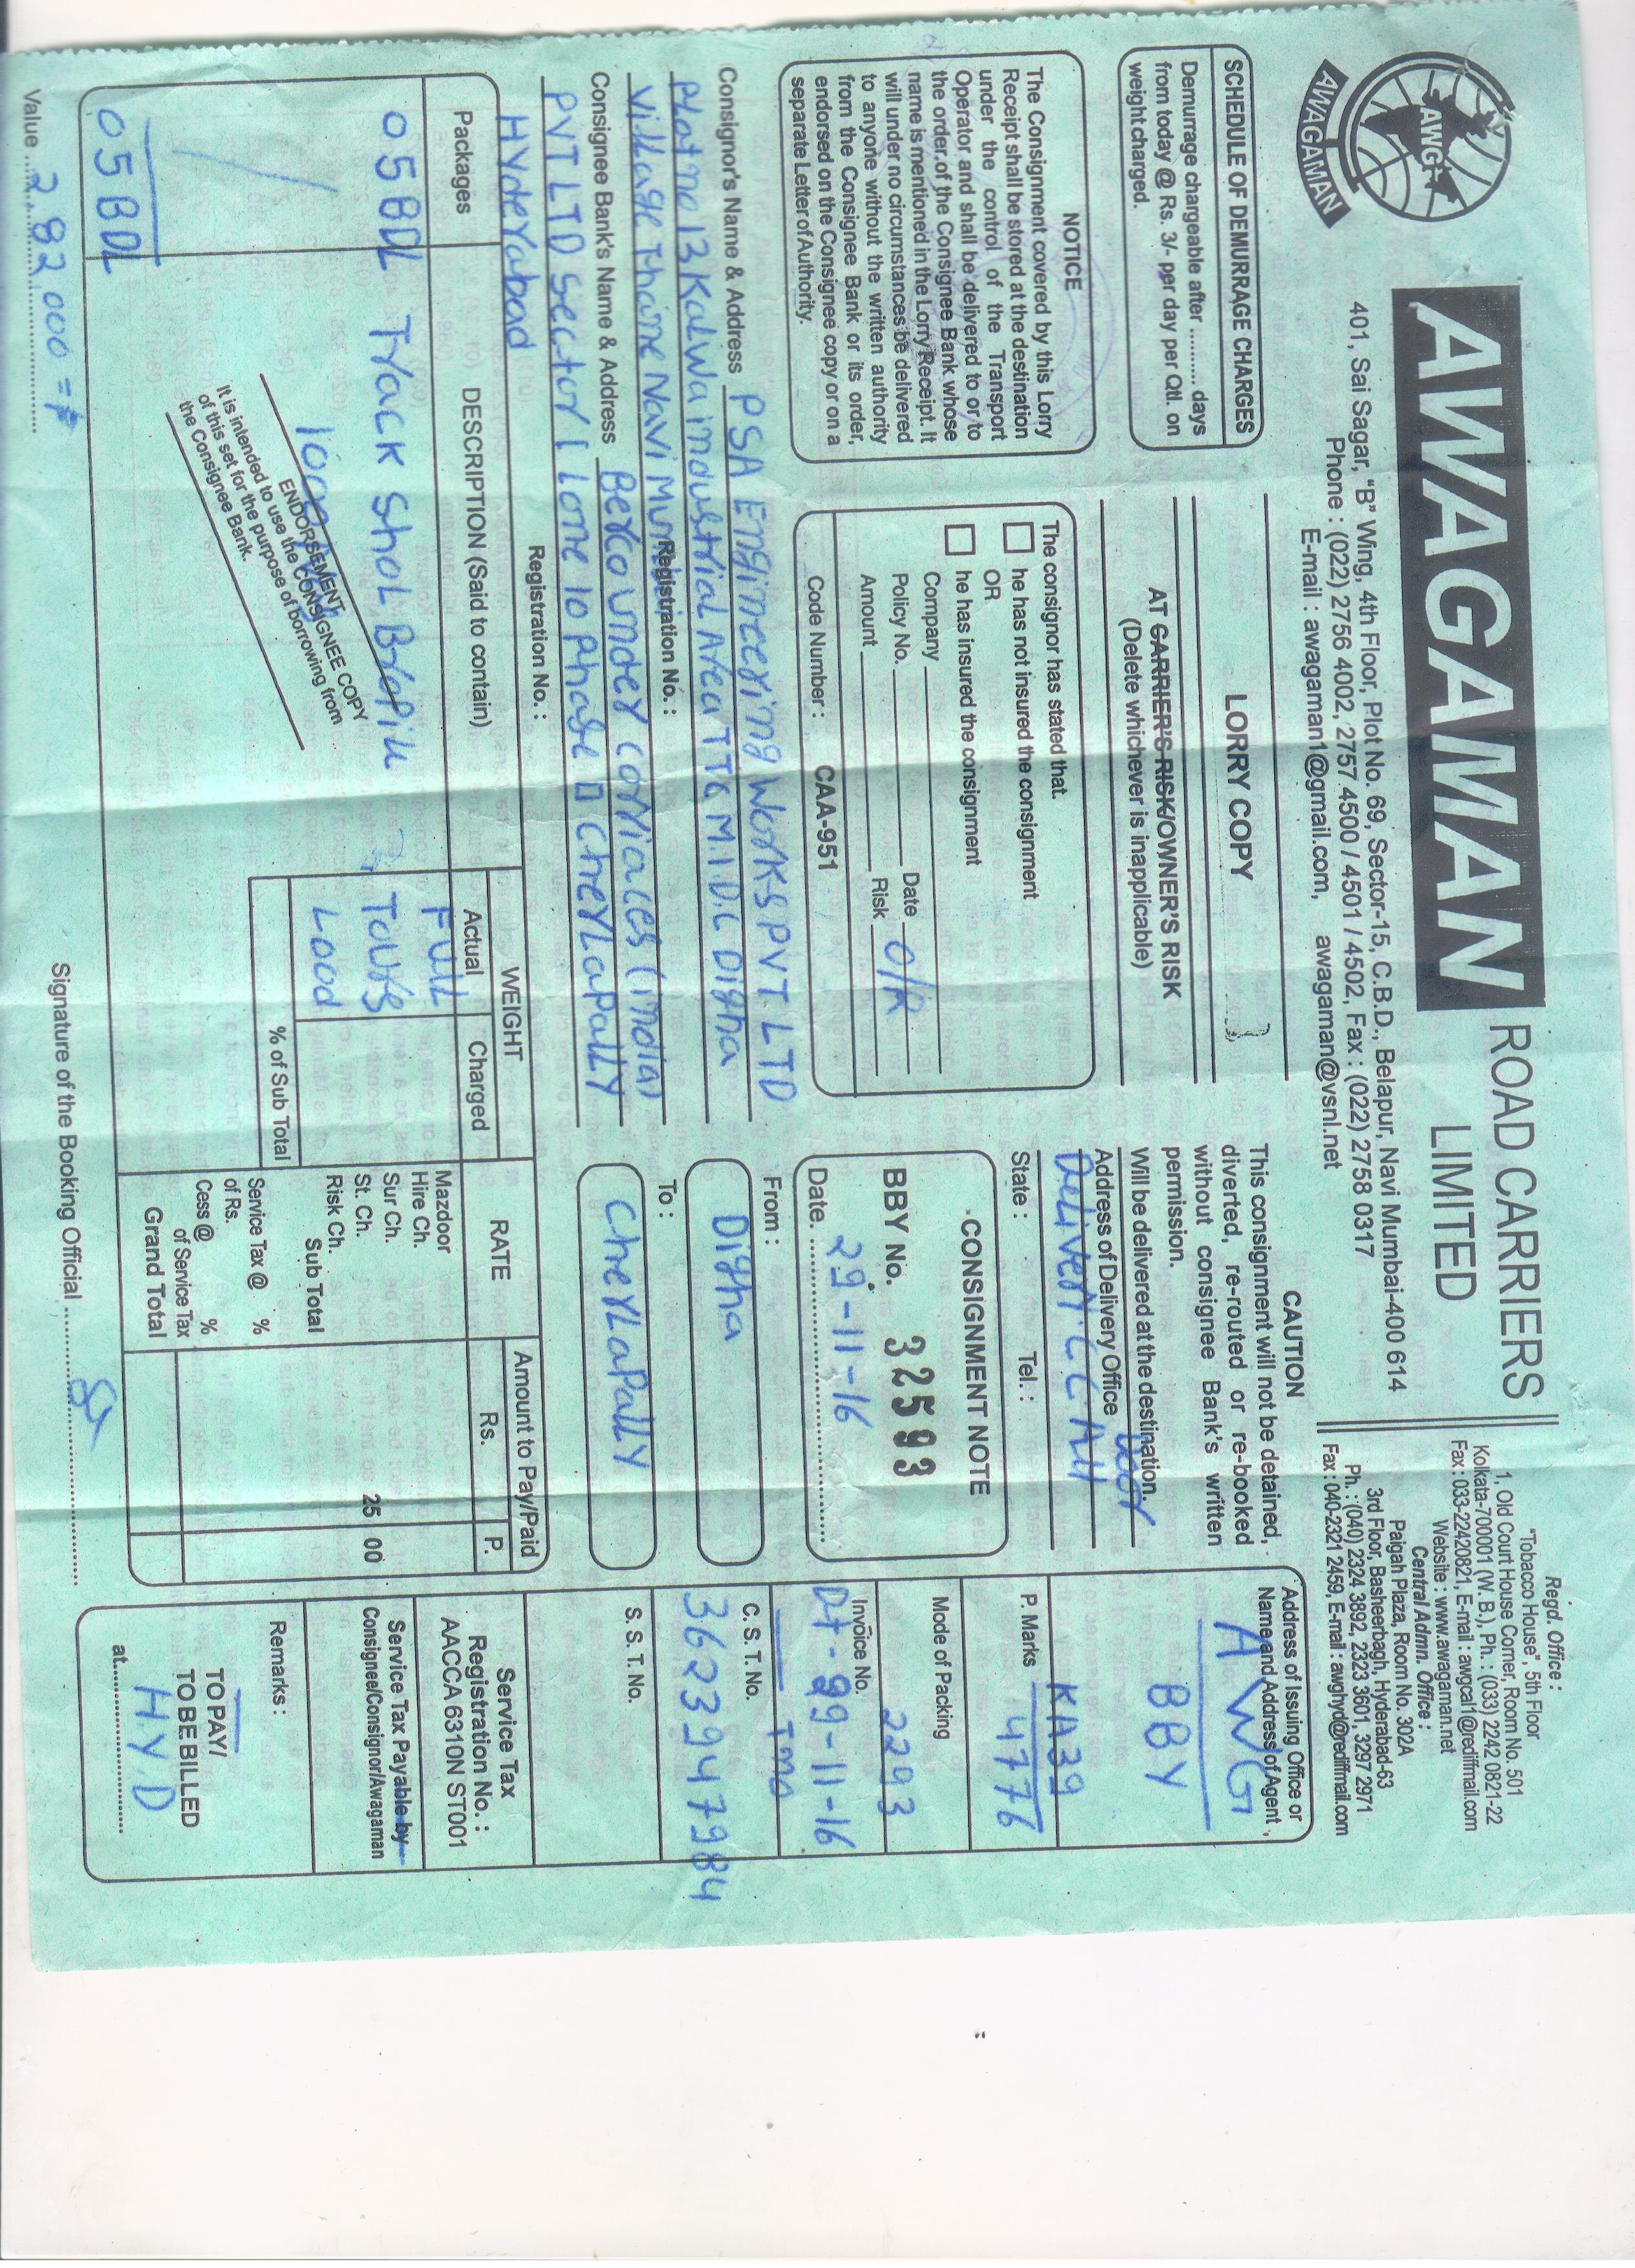 AWG
AWAGAMAN
AWAGAMAN ROAD CARRIERS
LIMITED
401, Sai Sagar, "B" Wing, 4th Floor, Plot No. 69, Sector-15, C.B.D., Belapur, Navi Mumbai-400 614
Phone : (022) 2756 4002, 2757 4500 / 4501 / 4502, Fax : (022) 2758 0317
E-mail : awagaman1@gmail.com, awagaman@vsnl.net
Regd. Office :
"Tobacco House", 5th Floor
1, Old Court House Corner, Room No. 501
Kolkata-700001 (W. B.), Ph. : (033) 2242 0821-22
Fax : 033-22420821, E-mail : awgcal1@rediffmail.com
Website : www.awagaman.net
Central Admn. Office :
Paigah Plaza, Room No. 302A
3rd Floor, Basheerbagh, Hyderabad-63
Ph. : (040) 2324 3892, 2323 3601, 3297 2971
Fax : 040-2321 2459, E-mail : awghyd@rediffmail.com
SCHEDULE OF DEMURRAGE CHARGES
Demurrage chargeable after ......... days
from today @ Rs. 3/- per day per Qtl. on
weight charged.
NOTICE
The Consignment covered by this Lorry
Receipt shall be stored at the destination
under the control of the Transport
Operator and shall be delivered to or to
the order of the Consignee Bank whose
name is mentioned in the Lorry Receipt. It
will under no circumstances be delivered
to anyone without the written authority
from the Consignee Bank or its order,
endorsed on the Consignee copy or on a
separate Letter of Authority.
LORRY COPY
AT CARRIER'S RISK/OWNER'S RISK
(Delete whichever is inapplicable)
The consignor has stated that.
he has not insured the consignment
OR
he has insured the consignment
Company
Policy No. Date
Amount Risk O/R
Code Number : CAA-951
CAUTION
This consignment will not be detained,
diverted, re-routed or re-booked
without consignee Bank's written
permission.
Will be delivered at the destination.
Address of Delivery Office Door
Delivery
State : Tel. :
CONSIGNMENT NOTE
BBY No. 32593
Date. 29-11-16
From :
Digha
To :
Cherlapally
Address of Issuing Office or
Name and Address of Agent
AWG
BBY
KA39
P. Marks 4776
Mode of Packing
2293
Invoice No.
Dt-29-11-16
C. S. T. No.
36239479
S. S. T. No.
Service Tax
Registration No. :
AACCA 6310N ST001
Service Tax Payable by
Consigne/Consignor/Awagaman
Remarks :
TO PAY/
TO BE BILLED
at H.Y.D
Consignor's Name & Address PSA Engineering Works PVT LTD
Plot no 13 Kalwa industrial Area TTC M.I.D.C Digha
Village Thane Navi Mumbai Registration No. :
Consignee Bank's Name & Address Berco under carriages (india)
PVT LTD sector 1 Lone 10 phase Cherlapally
Hyderabad Registration No. :
Packages DESCRIPTION (Said to contain) WEIGHT RATE Amount to Pay/Paid
Actual Charged Rs. P.
05 BDL Track Shol
Full
Load
Mazdoor
Hire Ch.
Sur Ch.
St. Ch. 25 00
Risk Ch.
Sub Total
% of Sub Total
Service Tax @ %
of Rs.
Cess @ %
of Service Tax
Grand Total
ENDORSEMENT
It is intended to use the CONSIGNEE COPY
of this set for the purpose of borrowing from
the Consignee Bank.
05 BDL
Value 2,82 000 =
Signature of the Booking Official